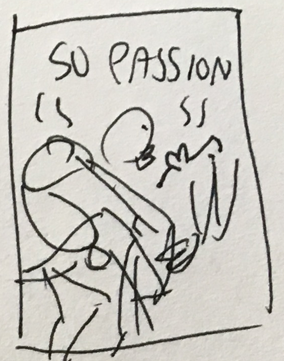 SO PASSION